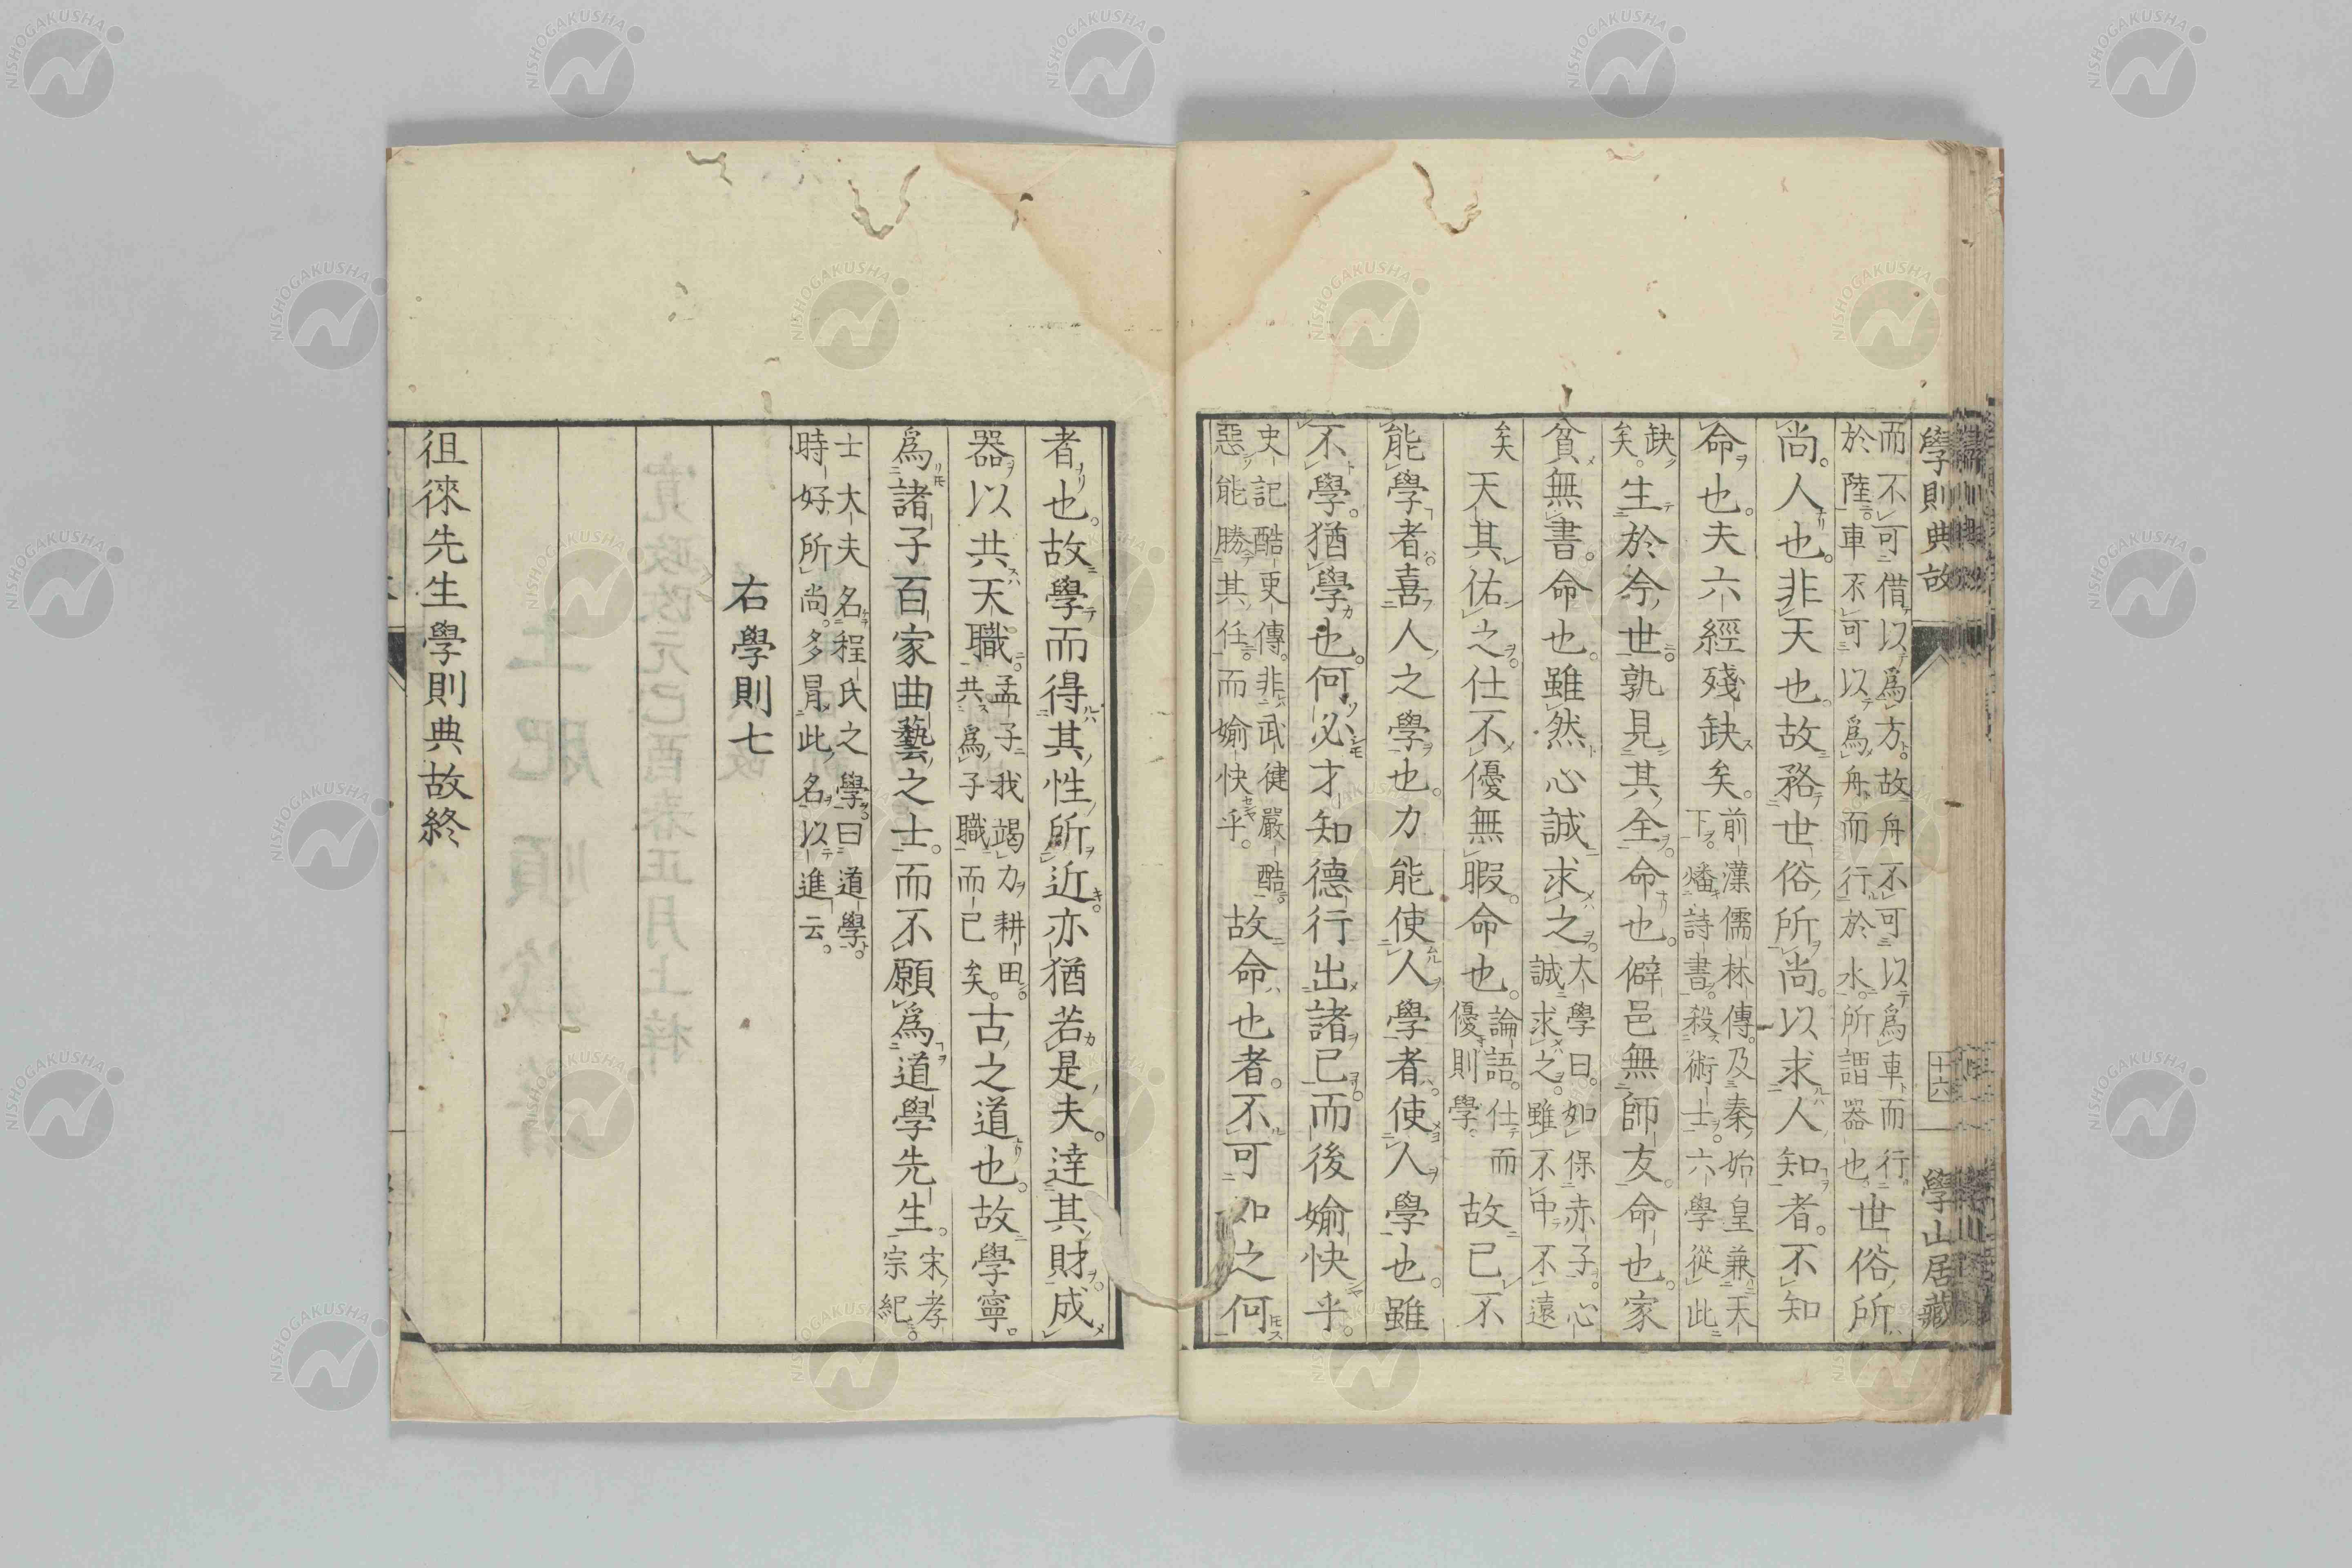 學則典故
十六
學山居藏
而不可借以爲方故舟不可以爲車而行
於陸車不可以爲舟而行於水所謂器也
世俗所
尚人也非天也故務世俗所尚以求人知者不知
命也夫六經殘缺矣
前漢儒林傳及秦始皇兼天
下燔詩書殺術士六學從此
缺
矣
生於今世孰見其全命也僻邑無師友命也家
貧無書命也雖然心誠求之
大學曰如保赤子心
誠求之雖不中不遠
矣
天其佑之仕不優無暇命也
論語仕而
優則學
故已不
能學者喜人之學也力能使人學者使人學也雖
不學猶學也何必才知德行出諸已而後婾快乎
史記酷吏傳非武健嚴酷
惡能勝其任而婾快乎
故命也者不可如之何
者也故學而得其性所近亦猶若是夫達其財成
器以共天職
孟子我竭力耕田
共爲子職而已矣
古之道也故學寧
爲諸子百家曲藝之士而不願爲道學先生
宋孝
宗紀
士大夫名程氏之學曰道學
時好所尚多冒此名以進云
右學則七
徂徠先生學則典故終
NISHOGAKUSHA